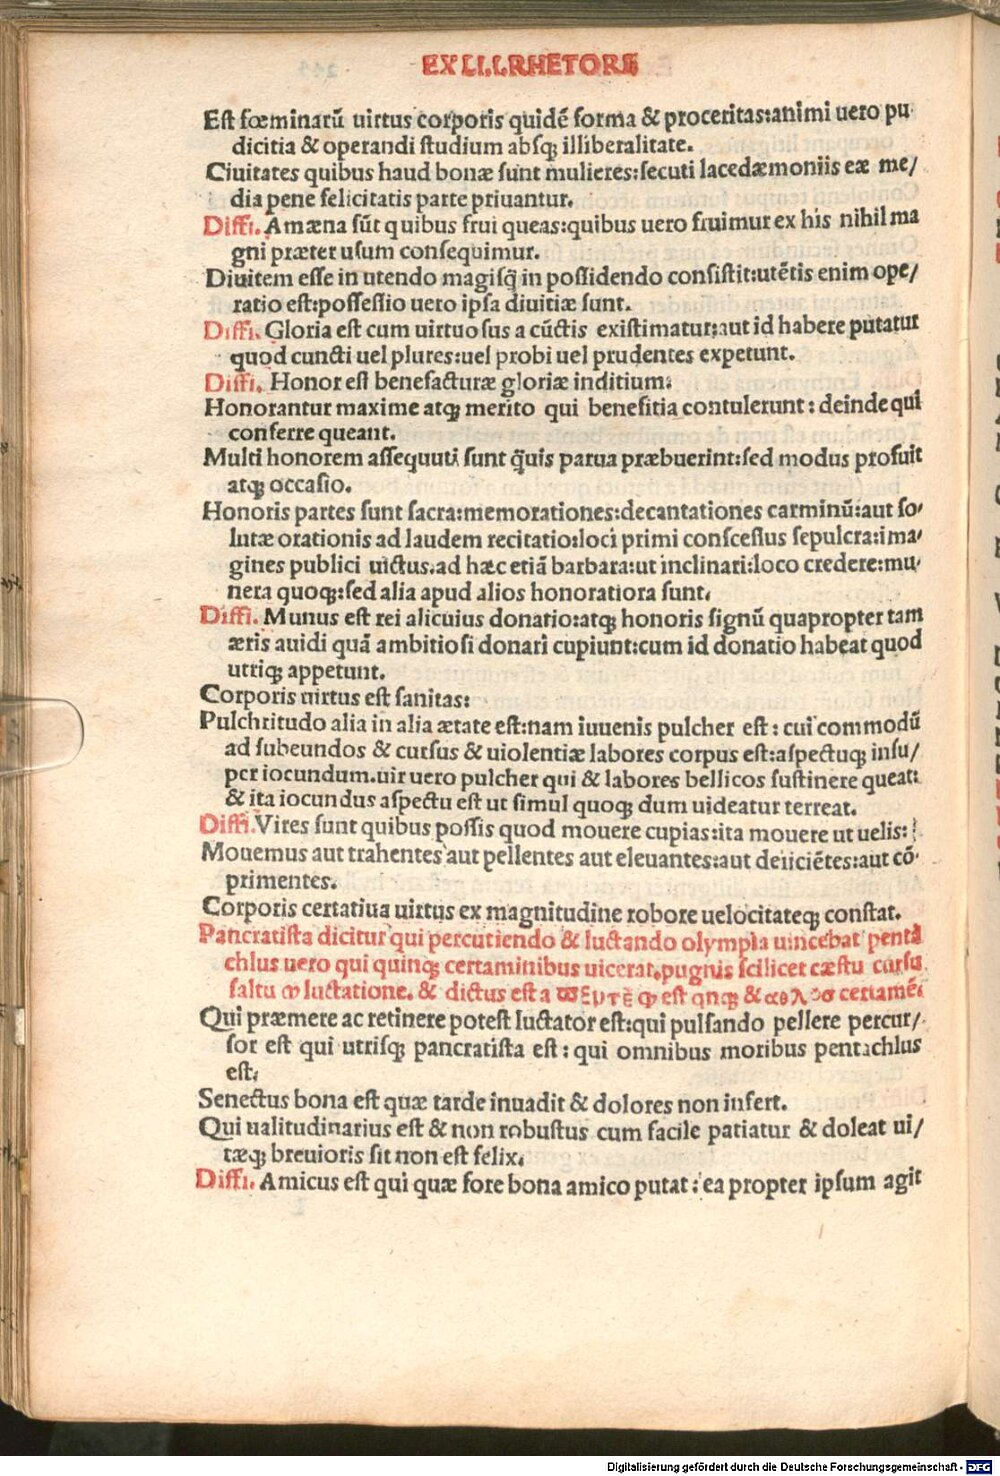 EX LI.I.RHETORE
Est fœminarū uirtus corporis quidē forma & proceritas:animi uero pu
dicitia & operandi studium absq; illiberalitate.
Ciuitates quibus haud bonæ sunt mulieres:secuti lacedæmoniis ex me/
dia pene felicitatis parte priuantur.
Diffi. Amæna sūt quibus frui queas:quibus uero fruimur ex his nihil ma
gni præter usum consequimur.
Diuitem esse in utendo magisq̄ in possidendo consistit:utētis enim ope/
ratio est:possessio uero ipsa diuitiæ sunt.
Diffi. Gloria est cum uirtuosus a cūctis existimatur:aut id habere putatur
quod cuncti uel plures:uel probi uel prudentes expetunt.
Diffi. Honor est benefacturæ gloriæ inditium:
Honorantur maxime atq; merito qui benefitia contulerunt: deinde qui
conferre queant.
Multi honorem assequuti sunt q̄uis parua præbuerint:sed modus profuit
atq; occasio.
Honoris partes sunt sacra:memorationes:decantationes carminū:aut so/
lutæ orationis ad laudem recitatio:loci primi conscessus sepulcra:ima/
gines publici uictus.ad hæc etiā barbara:ut inclinari:loco credere:mu/
nera quoq;:sed alia apud alios honoratiora sunt.
Diffi. Munus est rei alicuius donatio:atq; honoris signū quapropter tam
æris auidi quā ambitiosi donari cupiunt:cum id donatio habeat quod
utriq; appetunt.
Corporis uirtus est sanitas:
Pulchritudo alia in alia ætate est:nam iuuenis pulcher est: cui commodū
ad subeundos & cursus & uiolentiæ labores corpus est:aspectuq; insu/
per iocundum.uir uero pulcher qui & labores bellicos sustinere queat:
& ita iocundus aspectu est ut simul quoq; dum uideatur terreat.
Diffi.Vires sunt quibus possis quod mouere cupias:ita mouere ut uelis:
Mouemus aut trahentes aut pellentes aut eleuantes:aut deiiciētes:aut cō/
primentes.
Corporis certatiua uirtus ex magnitudine robore uelocitateq; constat.
Pancratista dicitur qui percutiendo & luctando olympia uincebat penta
chlus uero qui quinq; certaminibus uicerat.pugnis scilicet cæstu cursu
saltu luctatione. & dictus est a est qnq; & certamē:
Qui præmere ac retinere potest luctator est:qui pulsando pellere percur/
sor est qui utrisq; pancratista est: qui omnibus moribus pentachlus
est.
Senectus bona est quæ tarde inuadit & dolores non infert.
Qui ualitudinarius est & non robustus cum facile patiatur & doleat ui/
tæq; breuioris sit non est felix.
Diffi. Amicus est qui quæ fore bona amico putat: ea propter ipsum agit
Digitalisierung gefördert durch die Deutsche Forschungsgemeinschaft - DFG